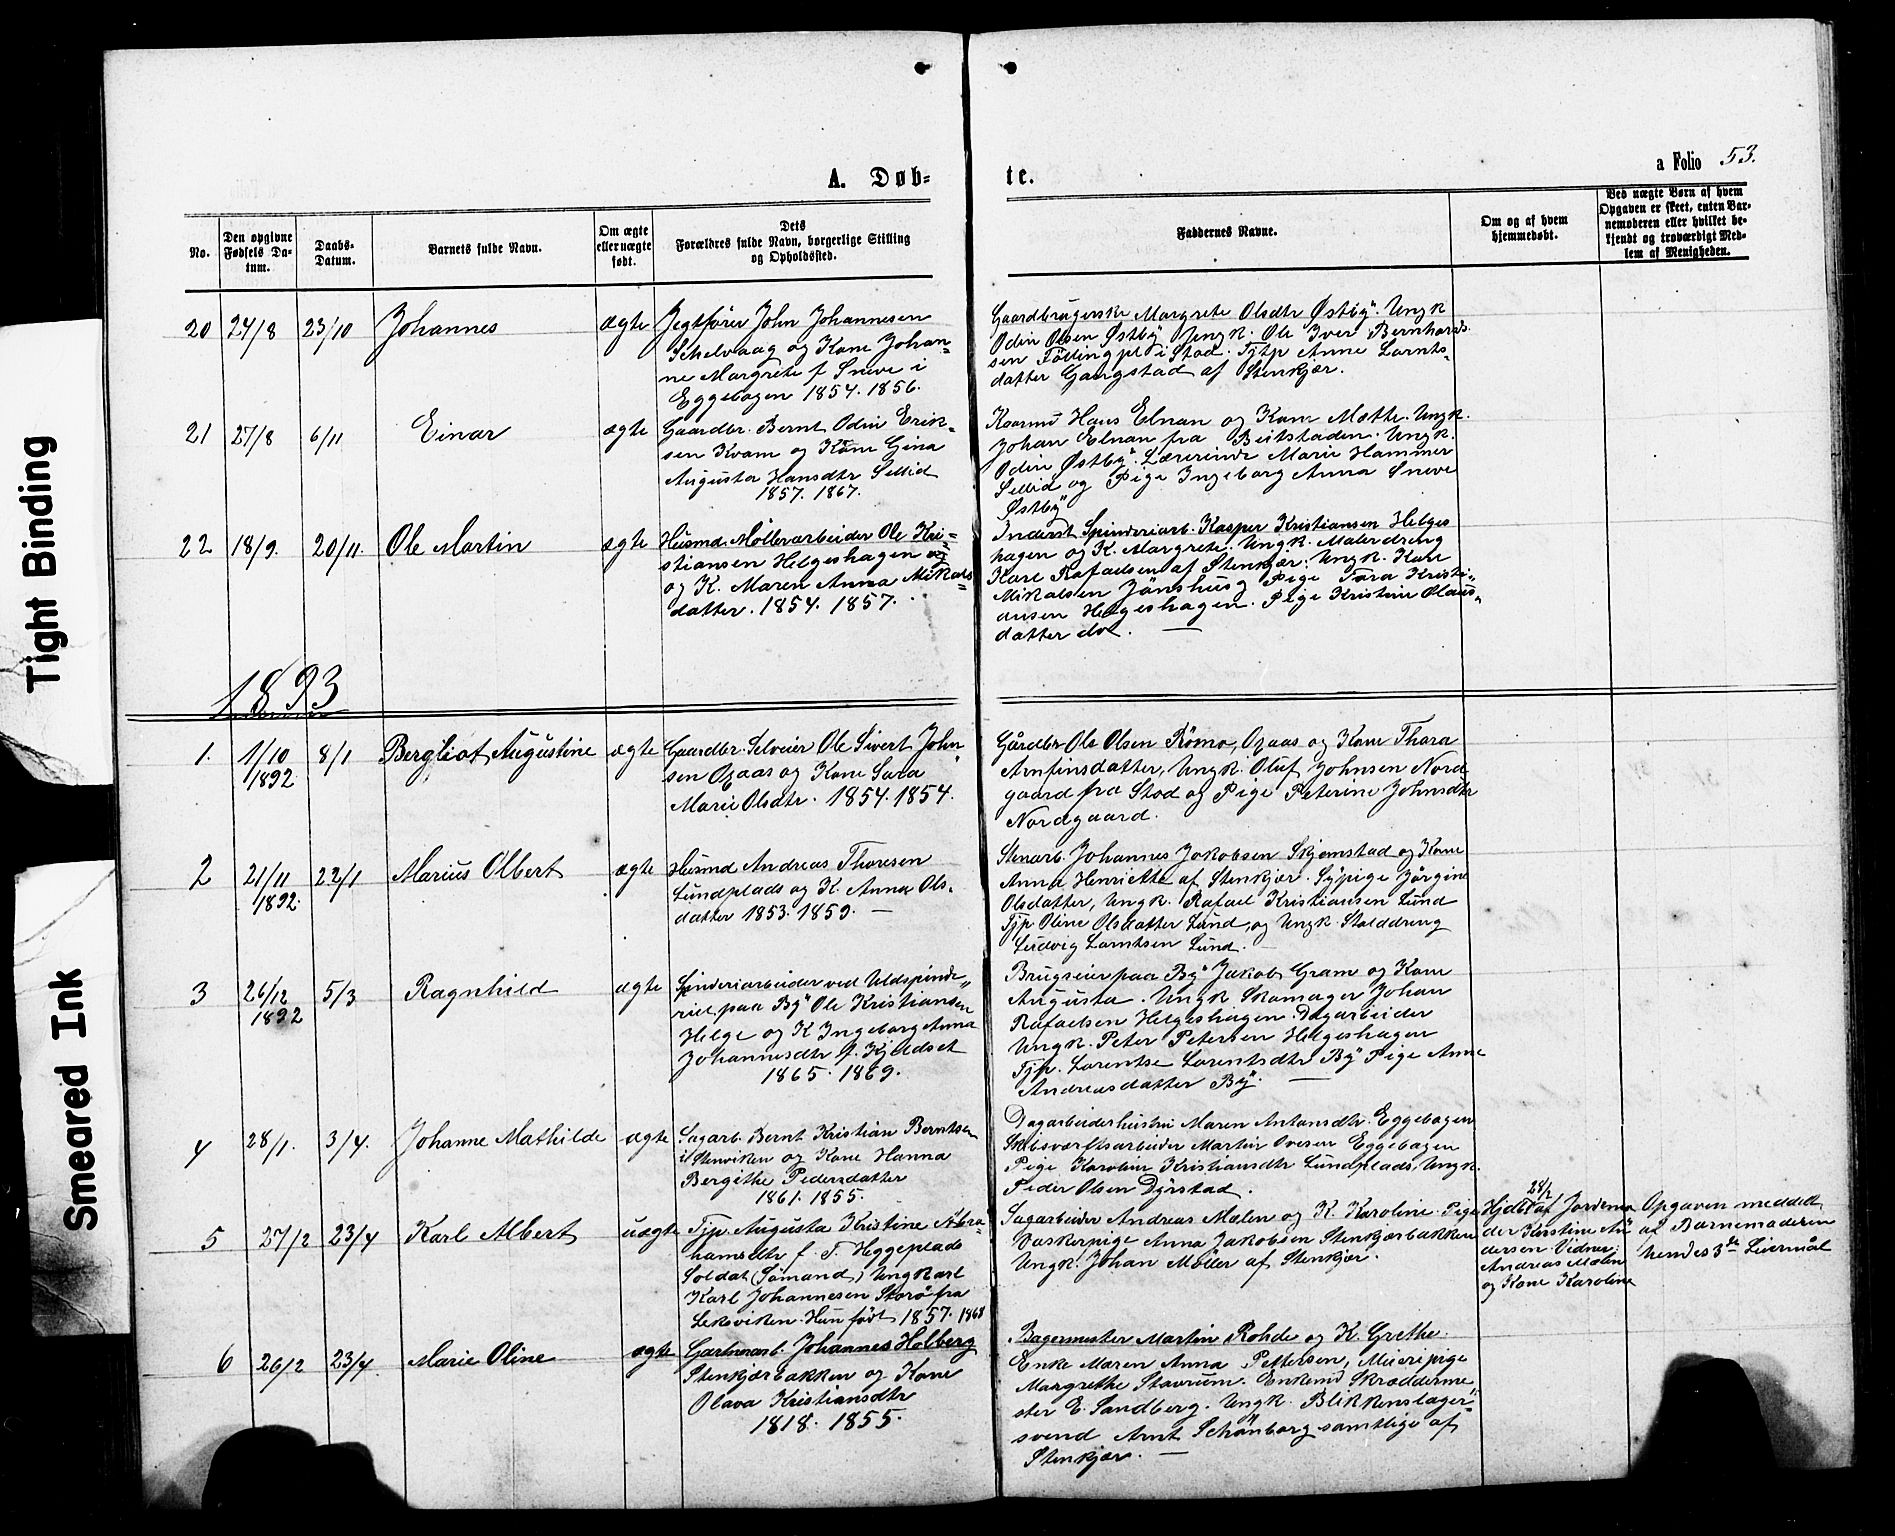 Tight Binding
Smeared Ink
a Folio 53.
A. Døb-
te.
No.
Den opgivne
Fødsels Da-
tum.
Daabs-
Datum.
Barnets fulde Navn.
Om ægte
eller uægte
født.
Dets
Forældres fulde Navn, borgerlige Stilling
og Opholdssted.
Faddernes Navne.
Om og af hvem
hjemmedøbt.
Ved uægte Børn af hvem
Opgaven er skeet, enten Bar-
nemoderen eller hvilket be-
kjendt og troværdigt Med-
lem af Menigheden.
20 24/8 23/10 Johannes ægte
Jegtfører John Johannesen
Schelvaag og Kone Johan-
ne Margrete f Sneve i
Eggebogen 1854. 1856.
Gaardbrugerske Margrete Olsdtr Østby. Ungk
Odin Olsen Østby Ungk. Ole Iver Bernhards
sen Föllingpl i Stod. Tjtp Anne Larnts-
datter Gangstad af Stenkjær.
21 27/8 6/11 Einar ægte
Gaardbr. Bernt Odin Erik-
sen Kvam og Kone Gina
Augusta Hansdtr Sellid
1857. 1867.
Kaarmd Hans Elnan og Kone Mætte. Ungk.
Johan Elnan fra Beitstaden. Ungk.
Odin Østby. Lærerinde Marie Hammer
Sellid og Pige Ingeborg Anna Sneve
Østby
22 18/9. 20/11. Ole Martin ægte
Husmd. Møllerarbeider Ole Kri-
stiansen Helgeshagen og
og K. Maren Anna Mikals-
datter. 1854. 1857.
Inderst Spinderiarb. Kasper Kristiansen Helges
hagen og K. Margrete. Ungk. Malerdreng
Karl Rafaelsen af Stenkjær. Ungk. Karl
Mikalsen Jönshus, Pige Tora Kristi-
ansen Helgeshagen. Pige Kristine Olaus-
datter do. —
1893
1. 1/10 1892 8/1 Bergliot Augustine ægte
Gaardbr. Selveier Ole Sivert John-
sen Oxaas og Kone Sara
Marie Olsdtr. 1854. 1854.
Gårdbr Ols Olsen Römo, Oxaas og Kone Thora
Arnfinsdatter, Ungk. Oluf Johnsen Nord
gaard fra Stod og Pige Peterine Johnsdtr
Nordgaard.
2 21/11 1892. 22/1 Marius Olbert ægte
Husmd Andreas Thoresen
Lundplads og K. Anna Ols-
datter 1853. 1859. —
Stenarb. Johannes Jakobsen Skjemstad og Kone
Anna Henriette af Stenkjær. Sypige Jörgine
Olsdatter, Ungk. Rafael Kristiansen Lund
Tjp Oline Olsdatter Lund, og Ungk. Stalddreng
Ludvig Larntsen Lund. —
3 26/12 1892 5/3 Ragnhild ægte
Spinderiarbeider ved Uldspinde-
riet paa By Ole Kristiansen
Helge og K Ingeborg Anna
Johannesdtr f. Kjeldset
1865. 1869.
Brugseier paa By Jakob Gram og Kone
Augusta. Ungk Skomager Johan
Rafaelsen Helgeshagen. Dagarbeider
Ungk. Peter Petersen Helgeshagen
Tjp. Lorentse Lorentsdtr By Pige Anne
Andreasdatter By. —
4 28/1. 3/4. Johanne Mathilde ægte
Sagarb. Bernt Kristian Berntsen
i Stenviken og Kone Hanna
Bergithe Pedersdatter
1861. 1855.
Dagarbeiderhustru Maren Antonsdtr. Eggebogen
Skibsværftsarbeider Martin Ovesen Eggebogen
Pige Karoline Kristiansdtr Lundplads, Ungk.
Peder Olsen Dyrstad.
5 27/2 23/4 Karl Albert uægte
Tjp. Augusta Kristine Abra-
hamsdtr f. T. Heggeplads
Soldat (Sømand) Ungkarl
Karl Johannesen Storø fra
Leksviken. Hun født 1857. 1868
Sagarbeider Andreas Mælen og K. Karoline. Pige
Vaskerpige Anna Jakobsen Stenkjærbakken
Ungk. Johan Möller af Stenkjær.
28/2
Hjdbt af Jordemo
der Kirstine An
dersen. Vidner:
Andreas Mælen
og Kone Karoline
Opgaven meddelt
af Barnemoderen
hendes 3de Leiermål
6 26/2 23/4. Marie Oline ægte
Garverarb. Johannes Holberg
Stenkjærbakken og Kone
Olava Kristiansdtr
1818. 1855.
Bagermester Martin Rohde og K. Grethe.
Enke Maren Anna Pettersen, Meieripige
Margrethe Stavrum. Enkemd Skrædderme
ster E. Sandberg. Ungk. Blikkenslager-
svend Arnt Schönborg samtlige af
Stenkjær. —